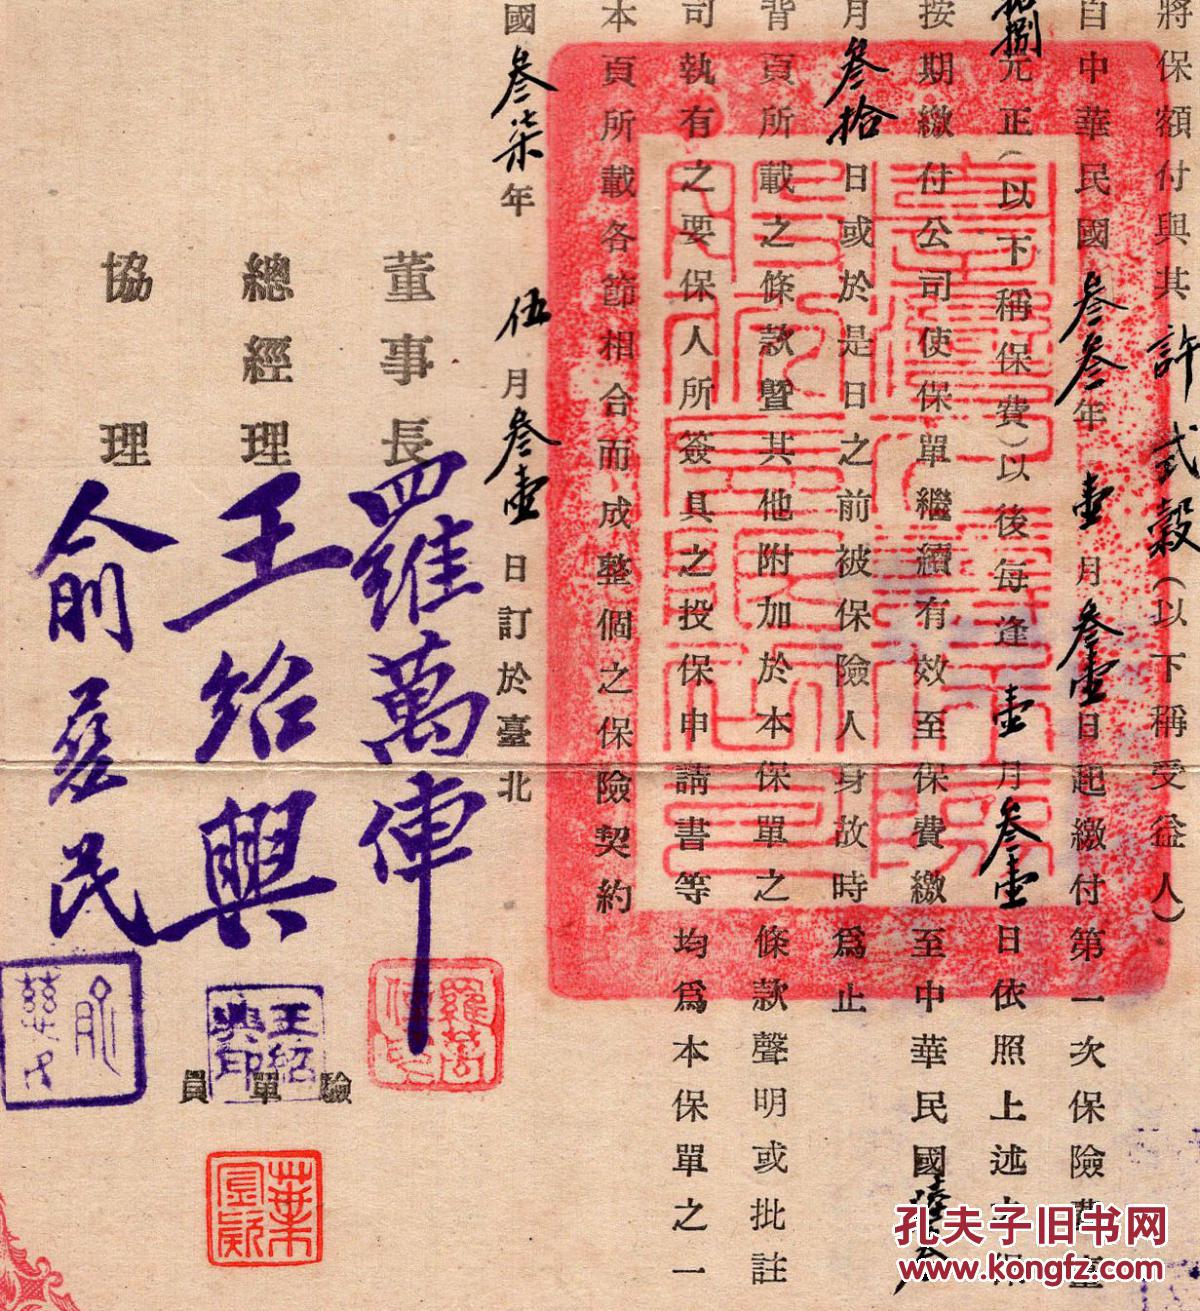 將保額付與其許式穀(以下稱受益人)
自中華民國叁叁年壹月叁壹日起繳付第一次保險費臺
捌元正(以下稱保費)以後每逢壹月叁壹日依照上述之保
按期繳付公司使保單繼續有效至保費繳至中華民國陸
月叁拾日或於是日之前被保險人身故時爲止
背頁所載之條款暨其他附加於本保單之條款聲明或批註
司執有之要保人所簽具之投保申請書等均爲本保單之一
本頁所載各節相合而成整個之保險契約
國叁柒年伍月叁壹日訂於臺北
董事長 羅萬俥
總經理 王紹興
協理 俞慈民
羅萬俥印
王紹興印
俞慈民
驗單員
葉
孔夫子旧书网
www.kongfz.com